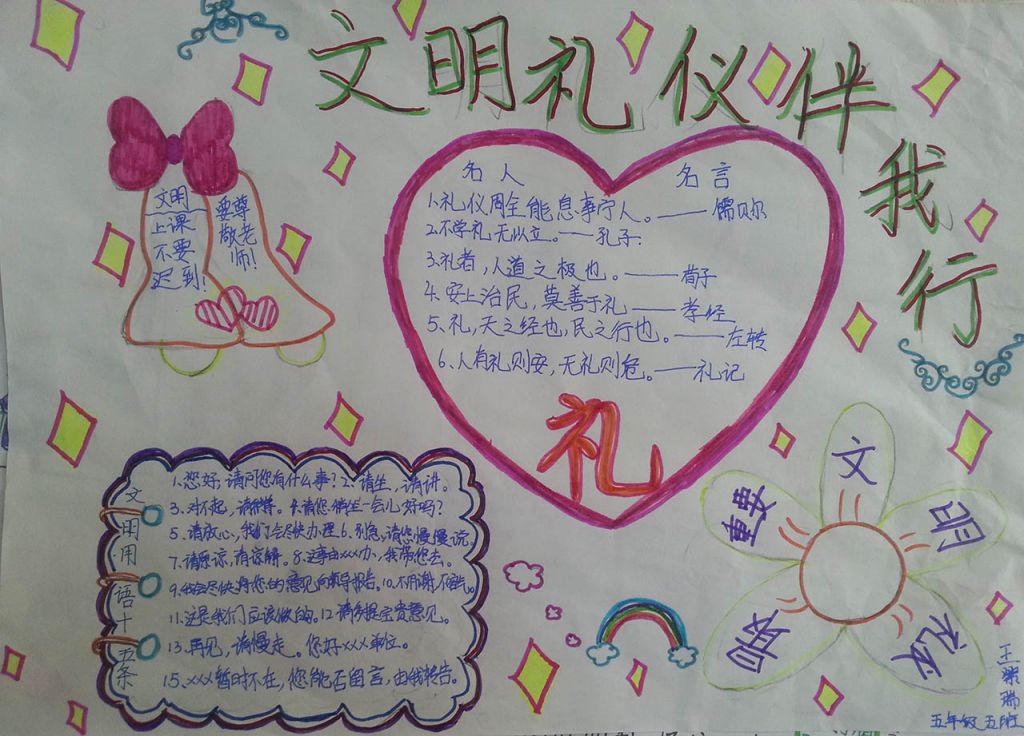 文明礼仪伴我行
文明
上课
不要
迟到!
要尊
敬老
师!
名人 名言
1.礼仪周全能息事宁人。——儒贝尔
2.不学礼无以立。——孔子.
3.礼者,人道之极也。——荀子
4.安上治民,莫善于礼——孝经
5、礼,天之经也,民之行也。——左转
6、人有礼则安,无礼则危。——礼记
礼
文明用语十五条
1.您好,请问您有什么事?2.请坐,请讲。
3.对不起,请稍等。4.请您稍坐一会儿好吗?
5.请放心,我们会尽快办理6.别急,请您慢慢说。
7.请原谅,请谅解。8.这事由xxx办,我带您去。
9.我会尽快将您的意见向领导报告。10.不用谢,不客气。
11.这是我们应该做的。12.请多提宝贵意见。
13.再见,请慢走。您好xxx单位。
15.xxx暂时不在,您能否留言,由我转告。
文
明
礼仪
最
重要
王
瑞
五年级五班